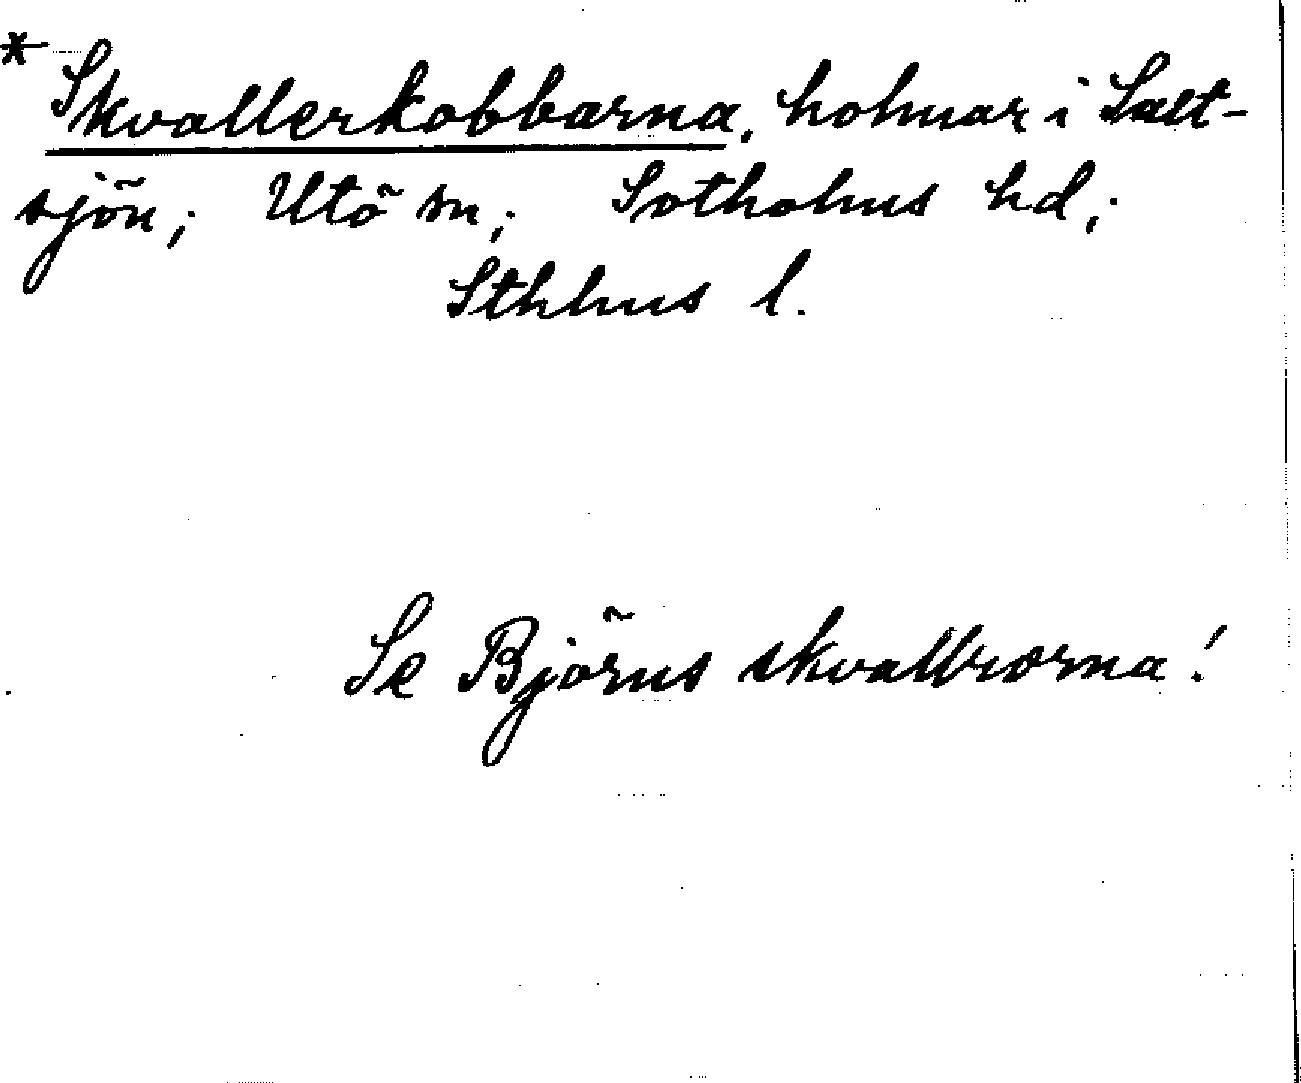 * Skvallerkobbarna, holmar i Salt-
sjön; Utö sn; Sotholms hd;
Sthlms l.
Se Björns skvallrorna!